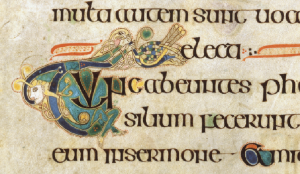 multi autem sunt uoca
electi
Tunc abeuntes pha
silium fecerunt
eum insermone